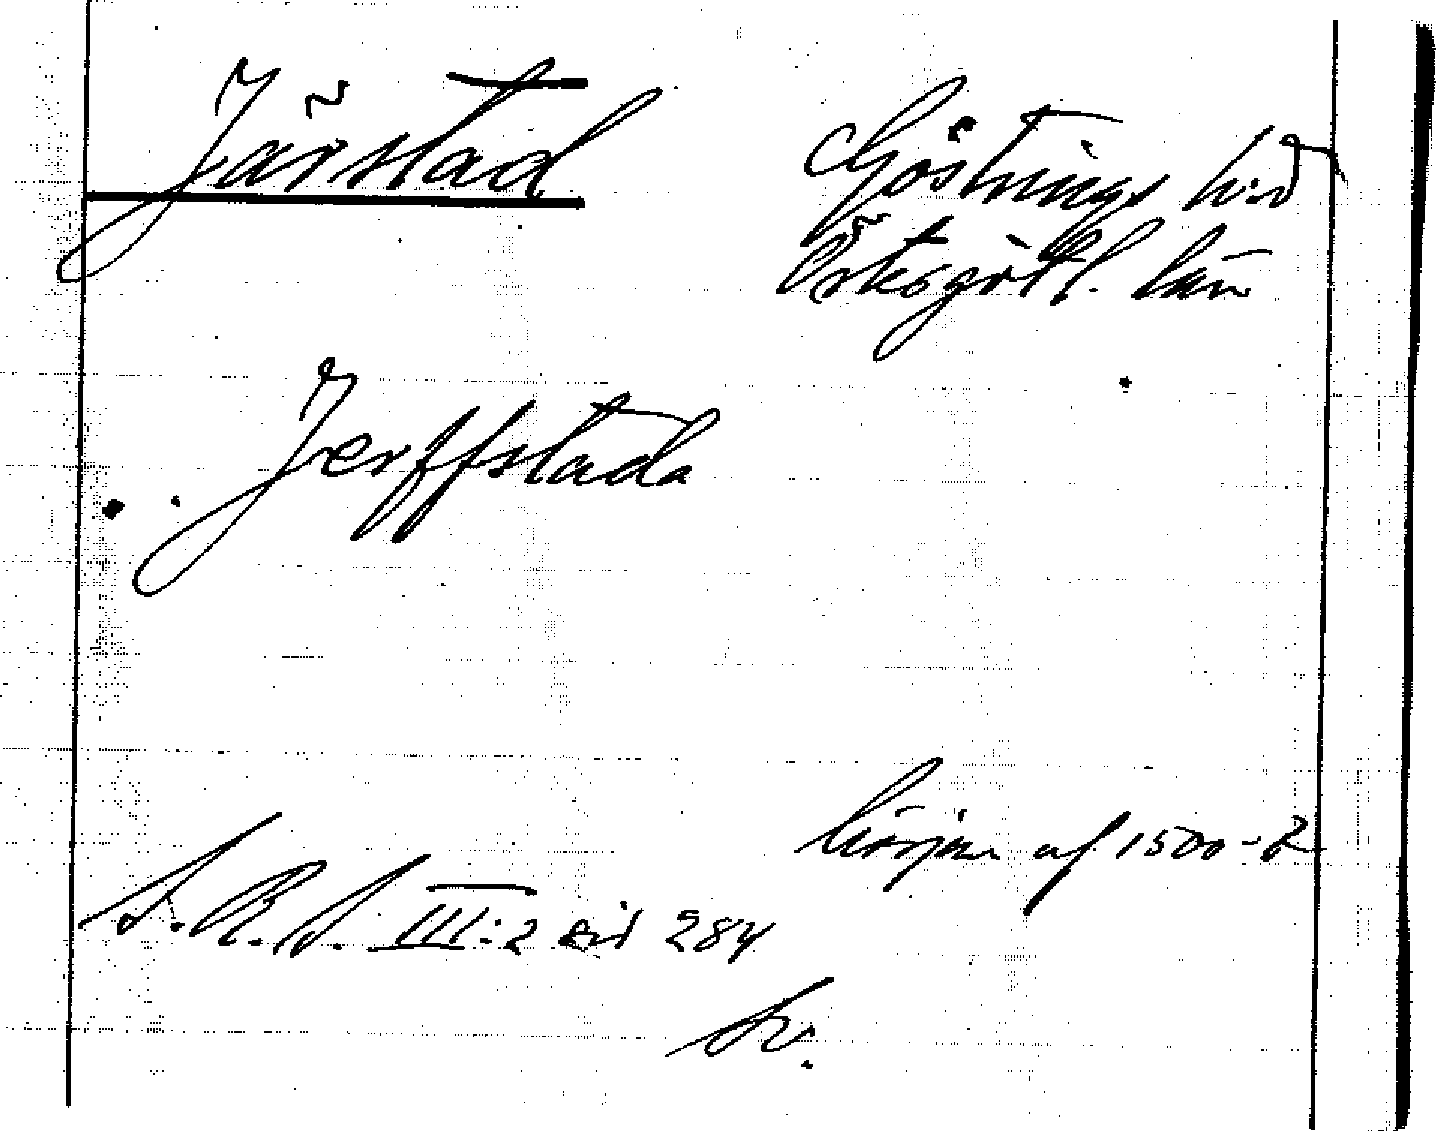 Järstad
Göstrings hd
Östergötl. län
Jerffstada
början af 1500-t
S.R.S. III:2 sid 284
Sv.